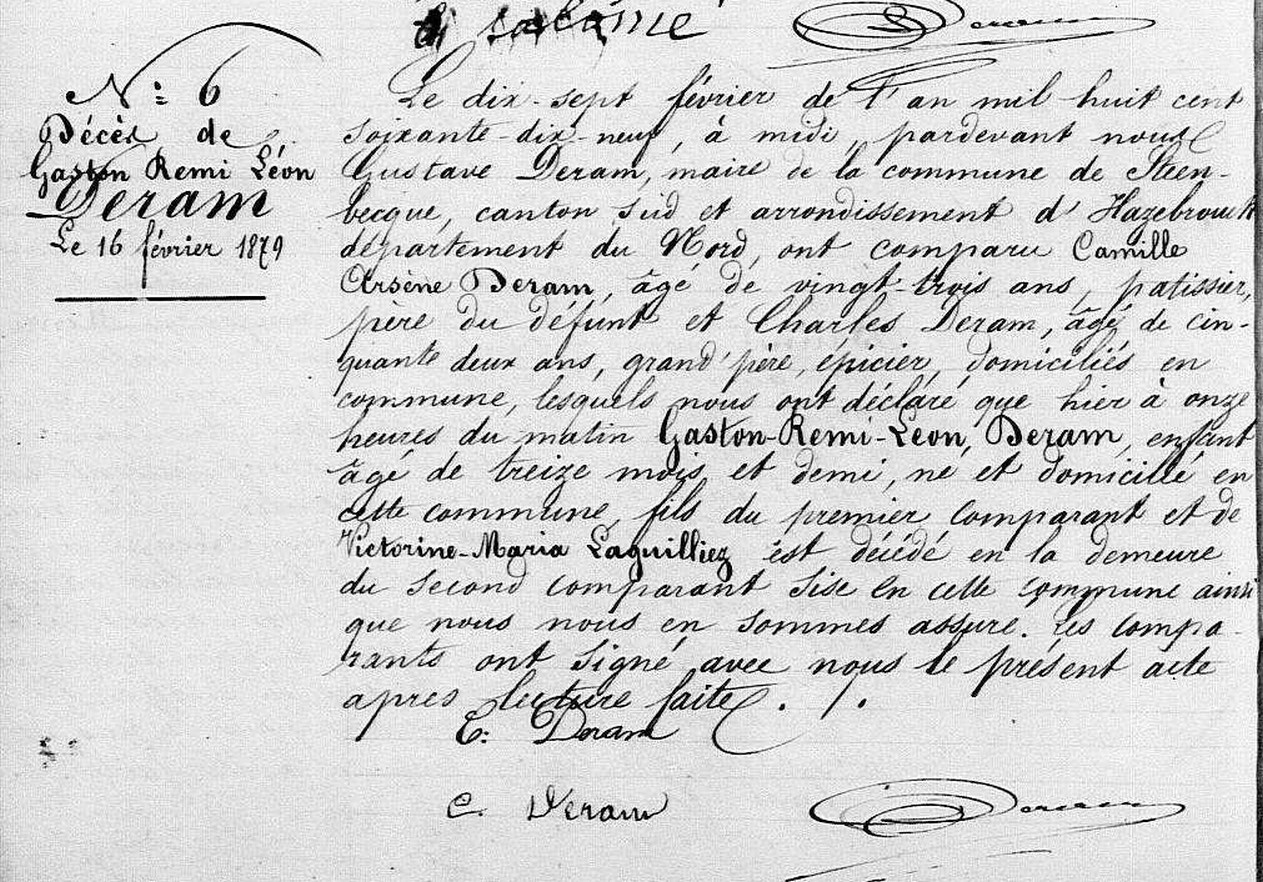 salomé
Deram
N° 6
Décès de
Gaston Remi Léon
Deram
Le 16 février 1879
Le dix-sept février de l'an mil huit cent
soixante-dix-neuf, à midi, pardevant nous
Gustave Deram, maire de la commune de Steen-
becque, canton sud et arrondissement d'Hazebrouck
département du Nord, ont comparu Camille
Arsène Deram, âgé de vingt-trois ans, patissier,
père du défunt et Charles Deram, âgé de cin-
quante deux ans, grand'père, épicier, domiciliés en
commune, lesquels nous ont déclaré que hier à onze
heures du matin Gaston-Remi-Léon Deram, enfant
âgé de treize mois et demi, né et domicilié en
cette commune, fils du premier comparant et de
Victorine-Maria Laguilliez est décédé en la demeure
du second comparant sise en cette commune ainsi
que nous nous en sommes assuré. Les compa-
rants ont signé avec nous le présent acte
apres lecture faite . /.
C. Deram
C. Deram
Deram